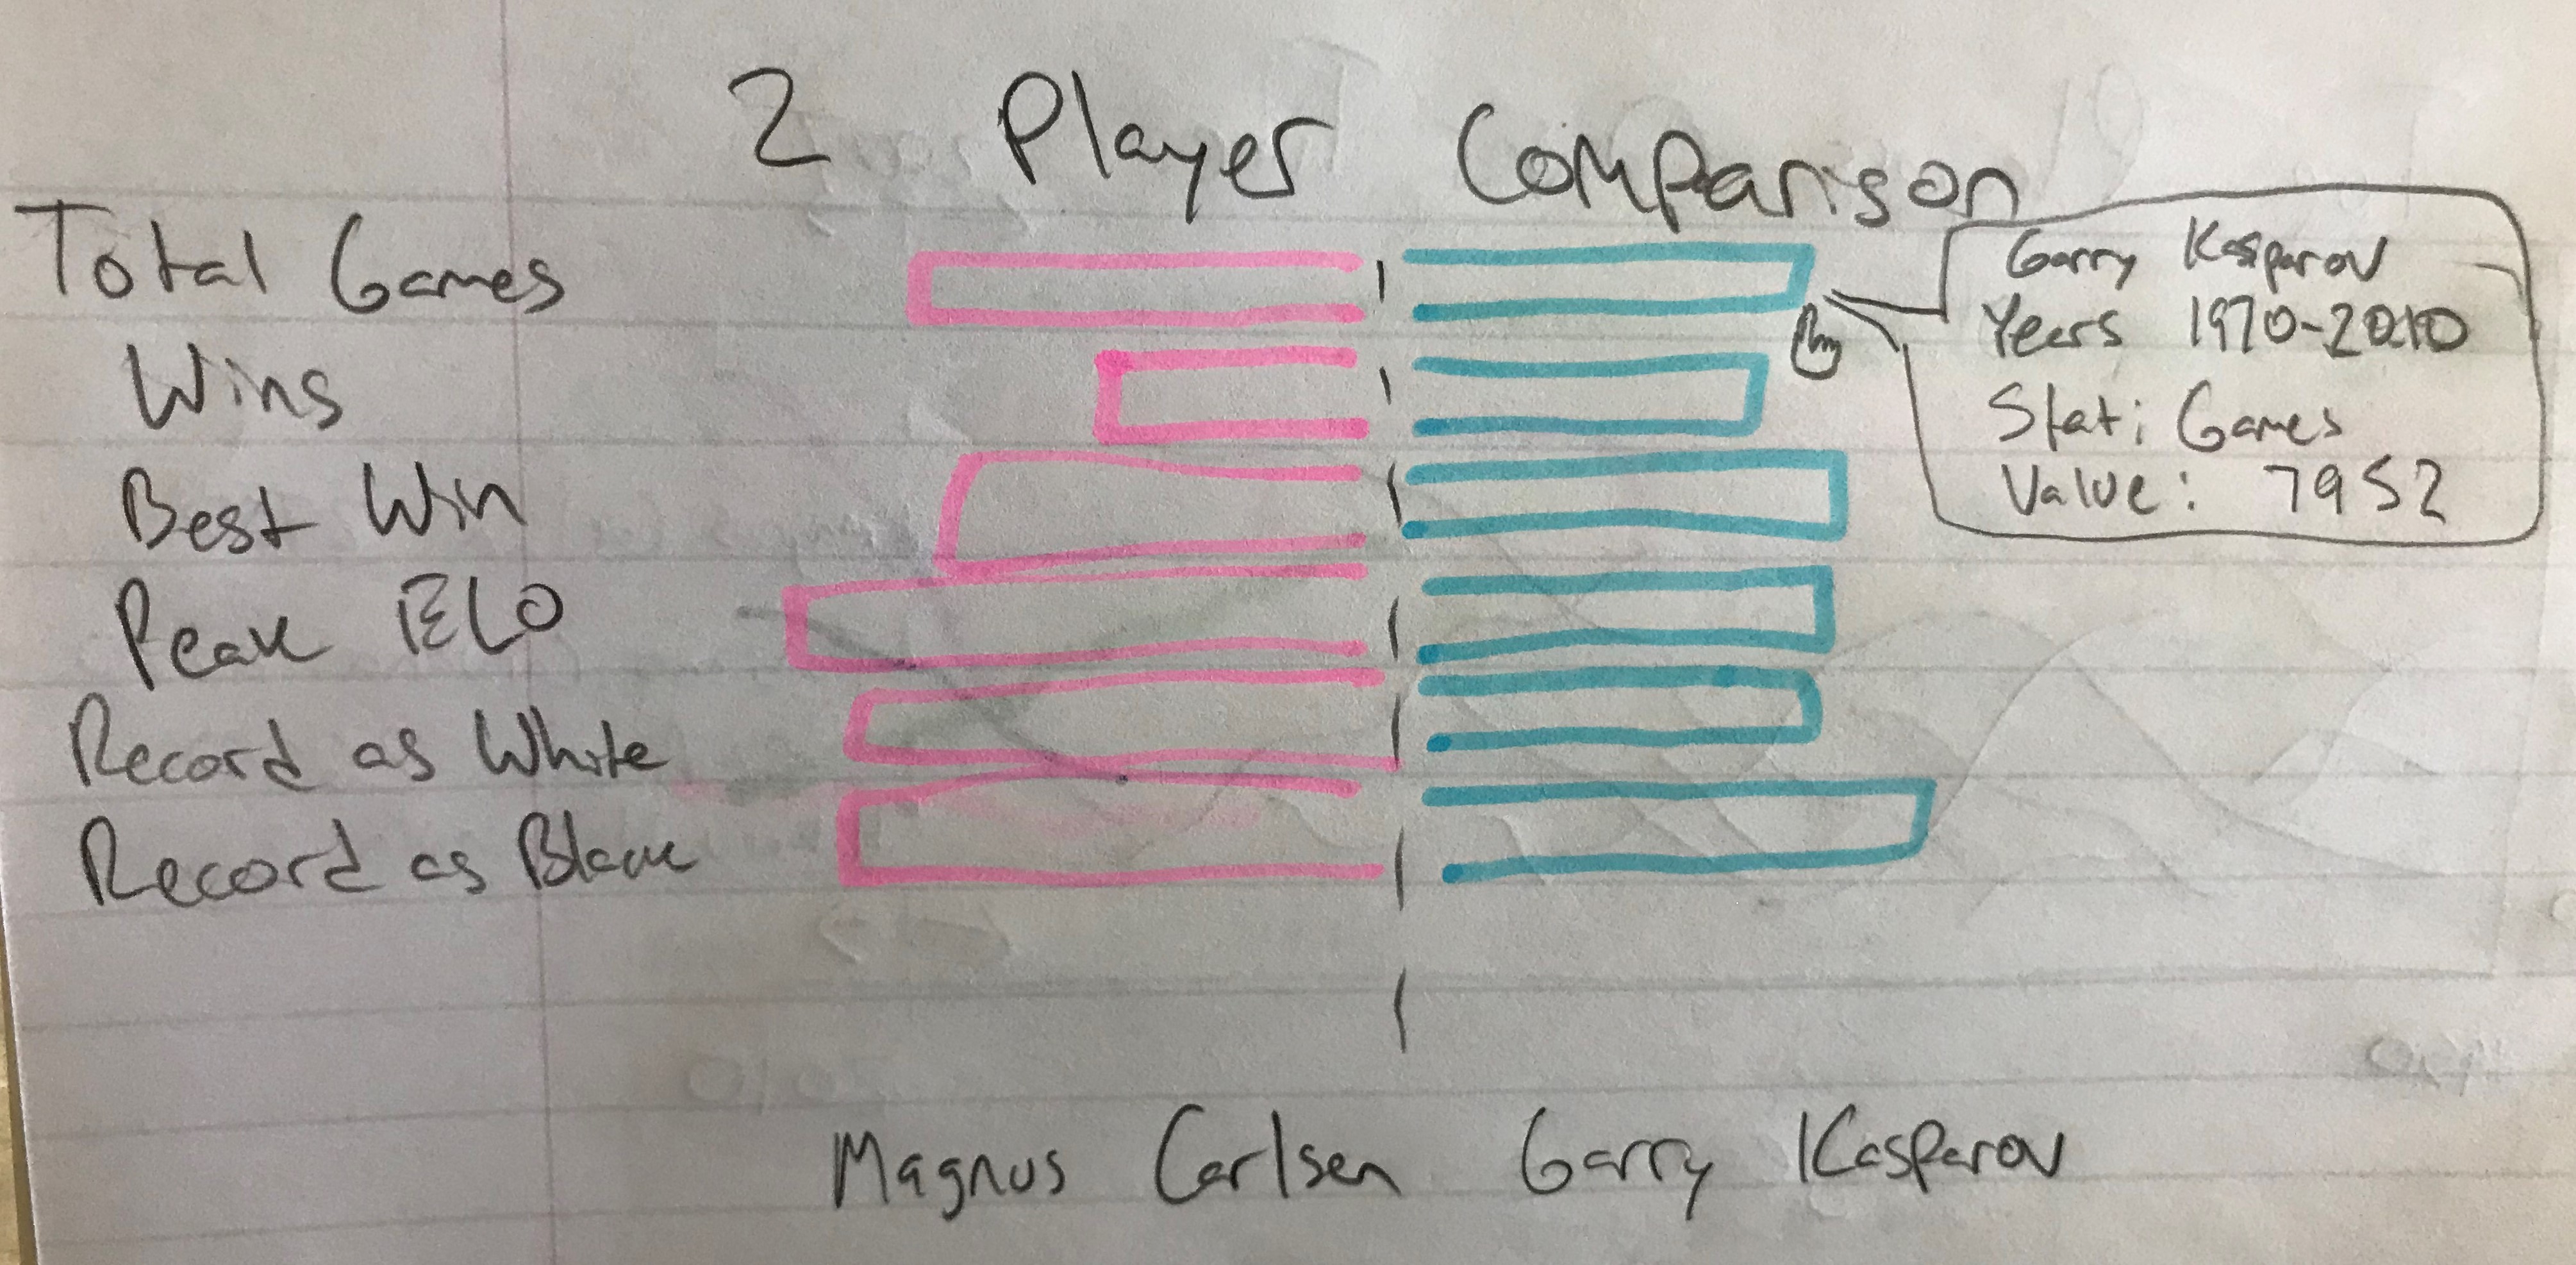 2 Player Comparison
Total Games
Wins
Best Win
Peak ELO
Record as White
Record as Black
Garry Kasparov
Years 1970-2010
Stat: Games
Value: 7952
Magnus Carlsen Garry Kasparov